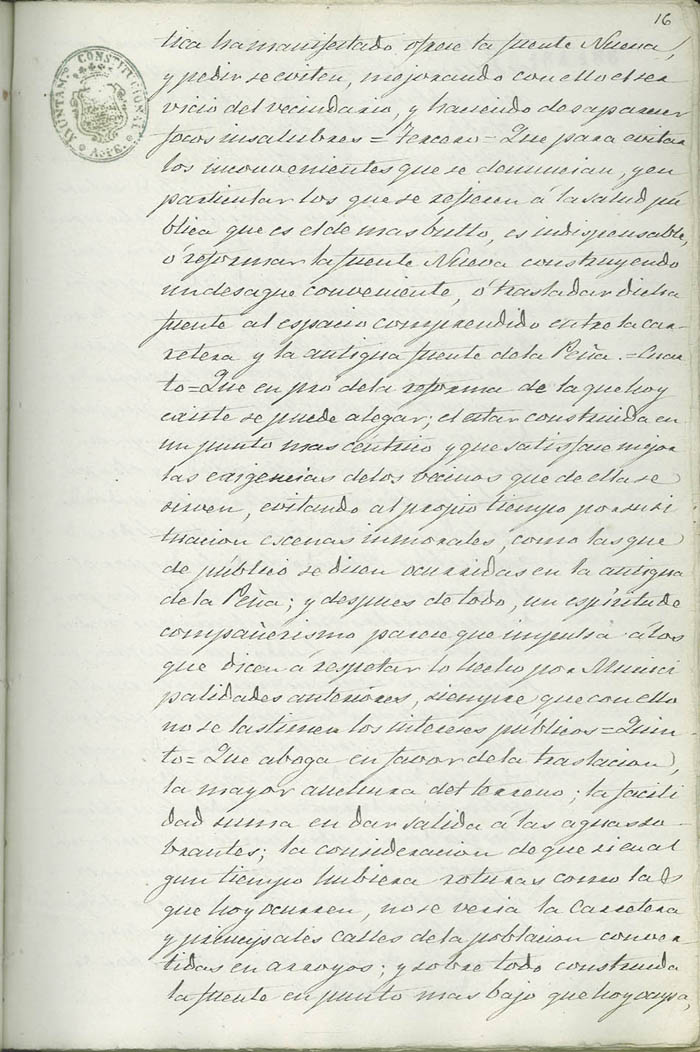 16
AYUNTAM.º CONSTITUCIONAL
ASPE
tica ha manifestado ofrece la fuente Nueva,
y pedir se eviten, mejorando con ello el ser
vicio del vecindario, y haciendo desaparecer
focos insalubres = tercero = Que para evitar
los inconvenientes que se denuncian, y en
particular los que se refieren á la salud pú
blica que es el de mas bulto, es indispensable,
ó reformar la fuente Nueva construyendo
un desague conveniente, ó trasladar dicha
fuente al espacio comprendido entre la car-
retera y la antigua fuente de la Peña. = Cuar
to = Que en pró de la reforma de la que hoy
existe se puede alegar; el estar construida en
un punto mas céntrico y que satisface mejor
las exigencias de los vecinos que de ella se
sirven, evitando al propio tiempo por su si
tuacion escenas inmorales, como las que
de público se dicen ocurridas en la antigua
de la Peña; y despues de todo, un espíritu de
compañerismo parece que impulsa á los
que dicen á respetar lo hecho por Munici
palidades anteriores, siempre que con ello
no se lastimen los intereses públicos = Quin-
to = Que aboga en favor de la traslacion,
la mayor anchura del terreno; la facili
dad suma en dar salida á las aguas so-
brantes; la consideracion de que si en al
gun tiempo hubiera roturas como las
que hoy ocurren, no se veria la Carretera
y principales calles de la poblacion conver
tidas en arroyos; y sobre todo construida
la fuente en punto mas bajo que hoy ocupa,